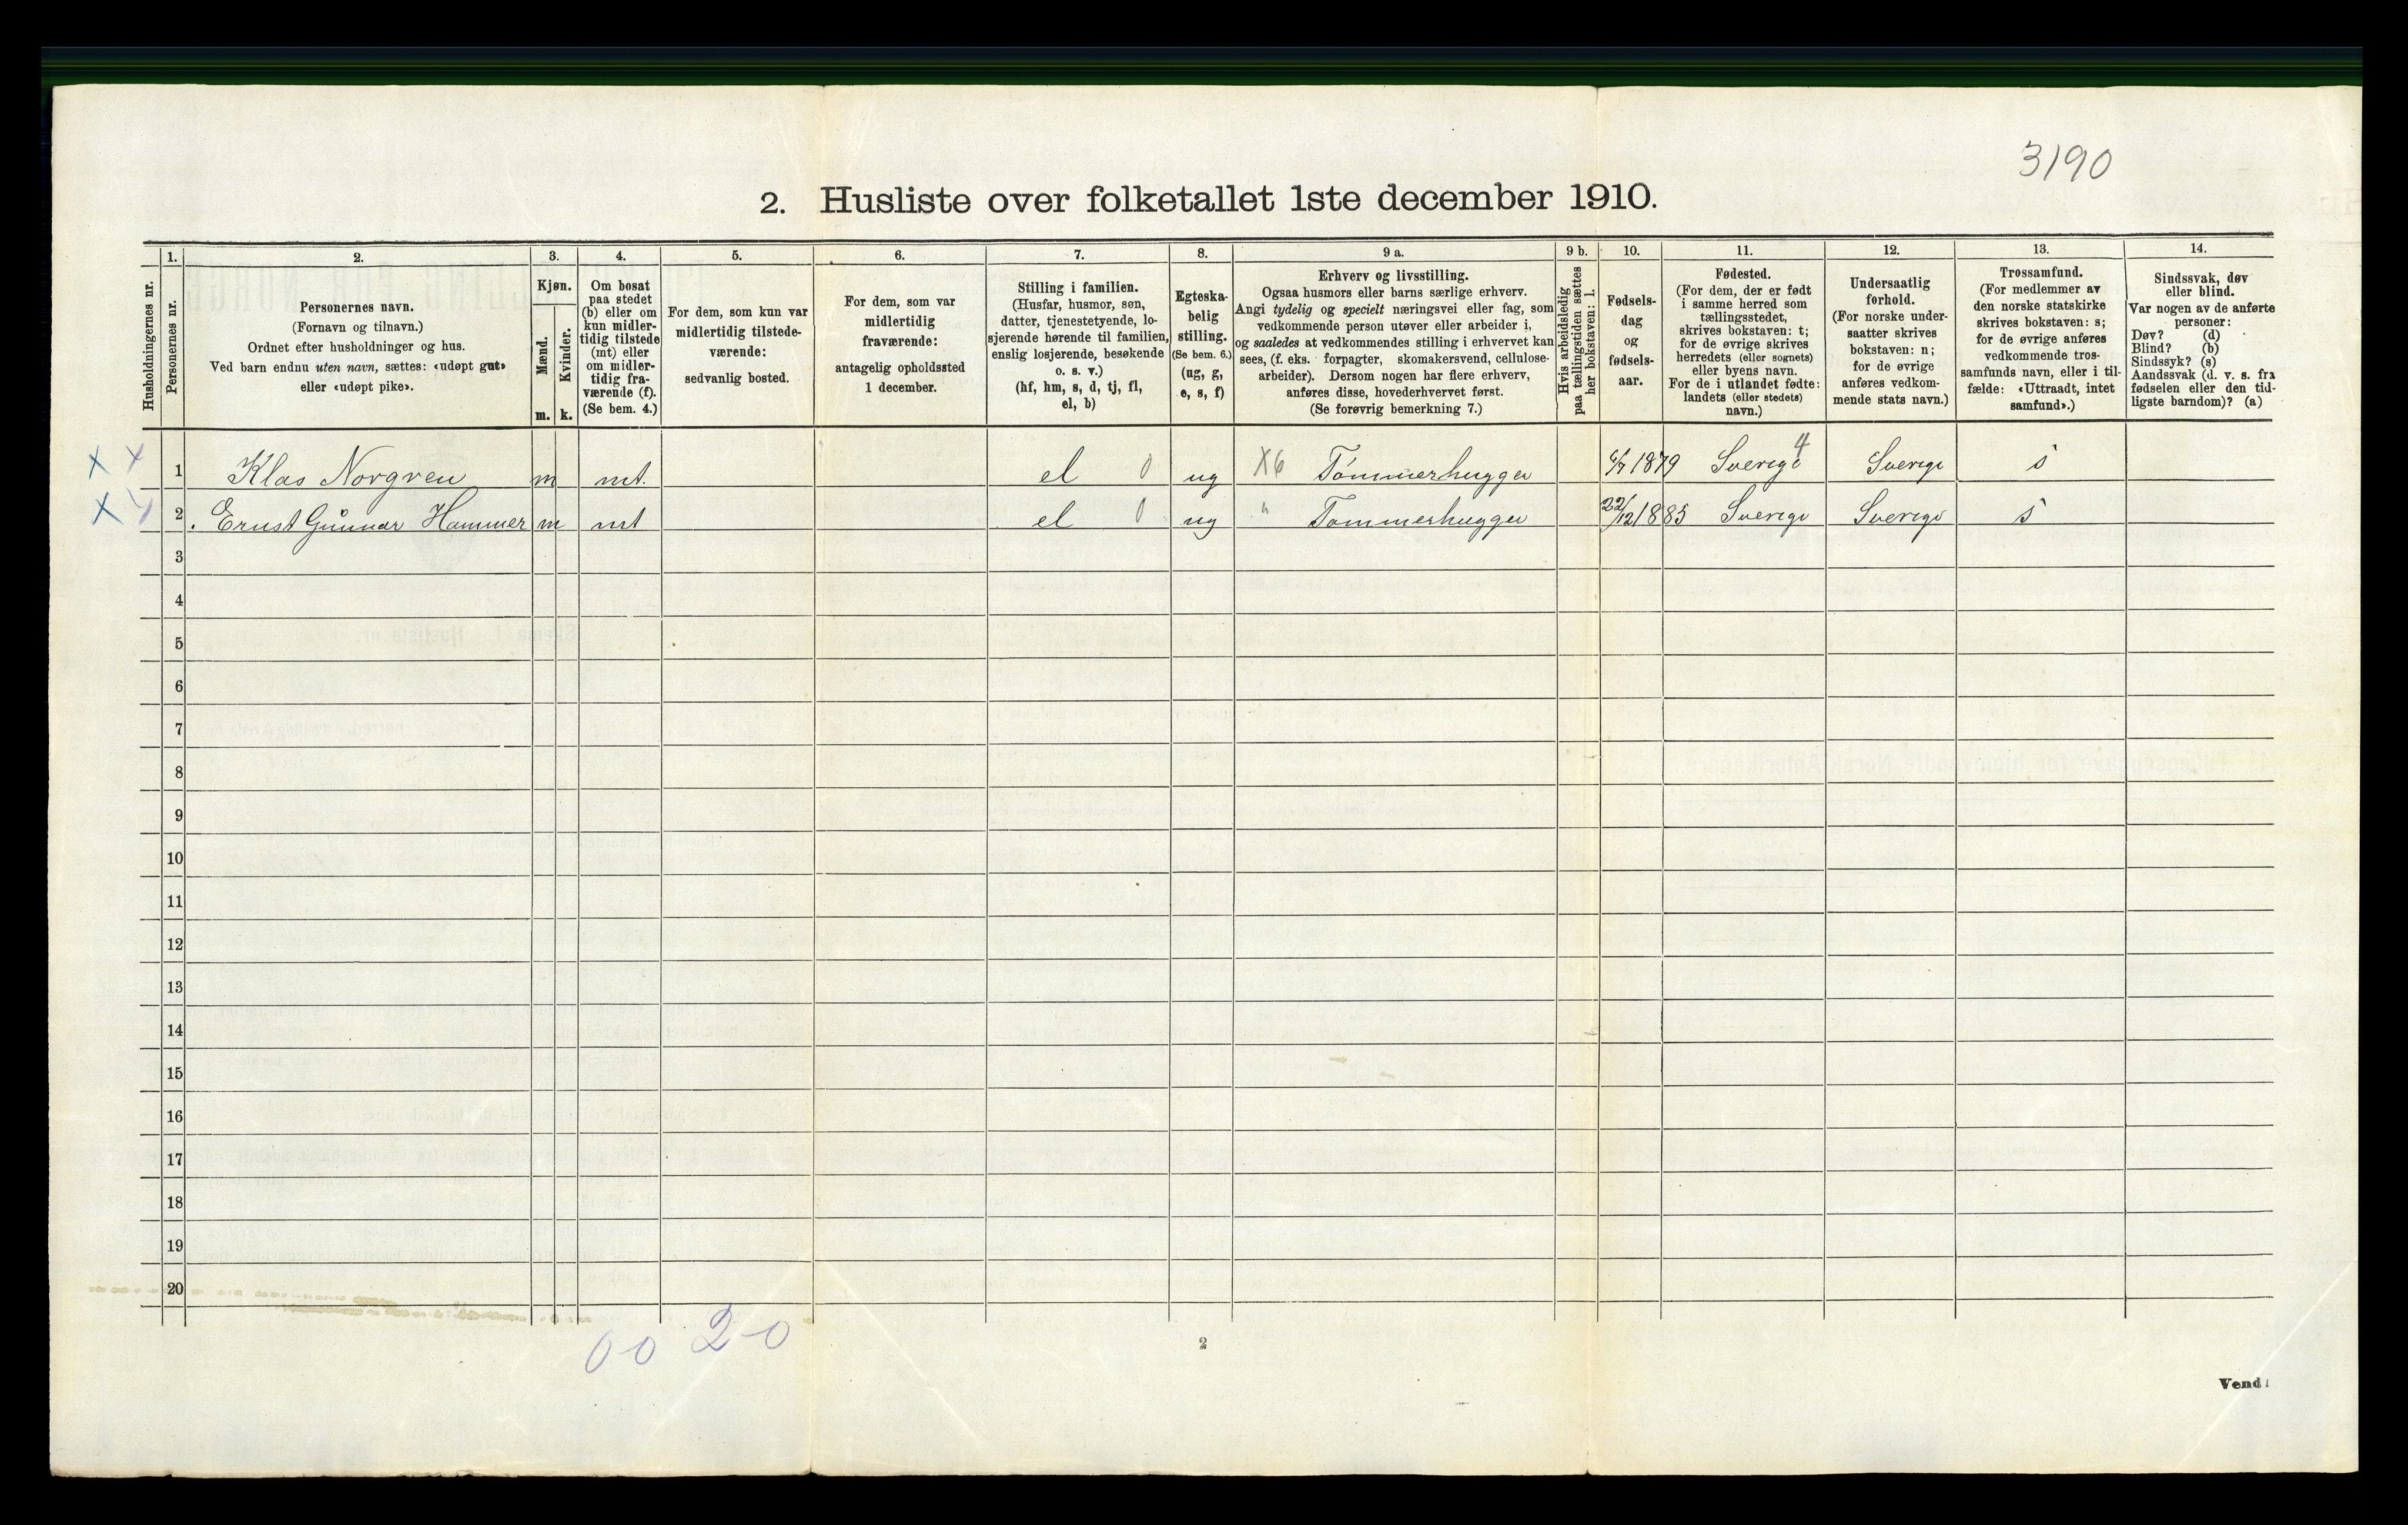 3190
2. Husliste over folketallet 1ste december 1910.
Husholdningernes nr.
1.
Personernes nr.
2.
Personernes navn.
(Fornavn og tilnavn.)
Ordnet efter husholdninger og hus.
Ved barn endnu uten navn, sættes: «udøpt gut»
eller «udøpt pike».
3.
Kjøn.
Mænd.
Kvinder.
m. k.
4.
Om bosat
paa stedet
(b) eller om
kun midler-
tidig tilstede
(mt) eller
om midler-
tidig fra-
værende (f).
(Se bem. 4.)
5.
For dem, som kun var
midlertidig tilstede-
værende:
sedvanlig bosted.
6.
For dem, som var
midlertidig
fraværende:
antagelig opholdssted
1 december.
7.
Stilling i familien.
(Husfar, husmor, søn,
datter, tjenestetyende, lo-
sjerende hørende til familien,
enslig losjerende, besøkende
o. s. v.)
(hf, hm, s, d, tj, fl,
el, b)
8.
Egteska-
belig
stilling.
(Se bem. 6.)
(ug, g,
e, s, f)
9 a.
Erhverv og livsstilling.
Ogsaa husmors eller barns særlige erhverv.
Angi tydelig og specielt næringsvei eller fag, som
vedkommende person utøver eller arbeider i,
og saaledes at vedkommendes stilling i erhvervet kan
sees, (f. eks. forpagter, skomakersvend, cellulose-
arbeider). Dersom nogen har flere erhverv,
anføres disse, hovederhvervet først.
(Se forøvrig bemerkning 7.)
9 b.
Hvis arbeidsledig
paa tællingstiden sættes
her bokstaven: l.
10.
Fødsels-
dag
og
fødsels-
aar.
11.
Fødested.
(For dem, der er født
i samme herred som
tællingsstedet,
skrives bokstaven: t;
for de øvrige skrives
herredets (eller sognets)
eller byens navn.
For de i utlandet fødte:
landets (eller stedets)
navn.)
12.
Undersaatlig
førhold.
(For norske under-
saatter skrives
bokstaven: n;
for de øvrige
anføres vedkom-
mende stats navn.)
13.
Trossamfund.
(For medlemmer av
den norske statskirke
skrives bokstaven: s;
for de øvrige anføres
vedkommende tros-
samfunds navn, eller i til-
fælde: «Uttraadt, intet
samfund».)
14.
Sindssvak, døv
eller blind.
Var nogen av de anførte
personer:
Døv? (d)
Blind? (b)
Sindssyk? (s)
Aandssvak (d. v. s. fra
fødselen eller den tid-
ligste barndom)? (a)
X 1 Klas Norgren m mt. el 0 ug X6 Tømmerhugger 6/7 1879 Sverige 4 Sverige s
X 2 Ernst Gunnar Hammer m mt el 0 ug " Tømmerhugger 22/12 1885 Sverige Sverige s
3
4
5
6
7
8
9
10
11
12
13
14
15
16
17
18
19
20
0 0 2 0
2
Vend!